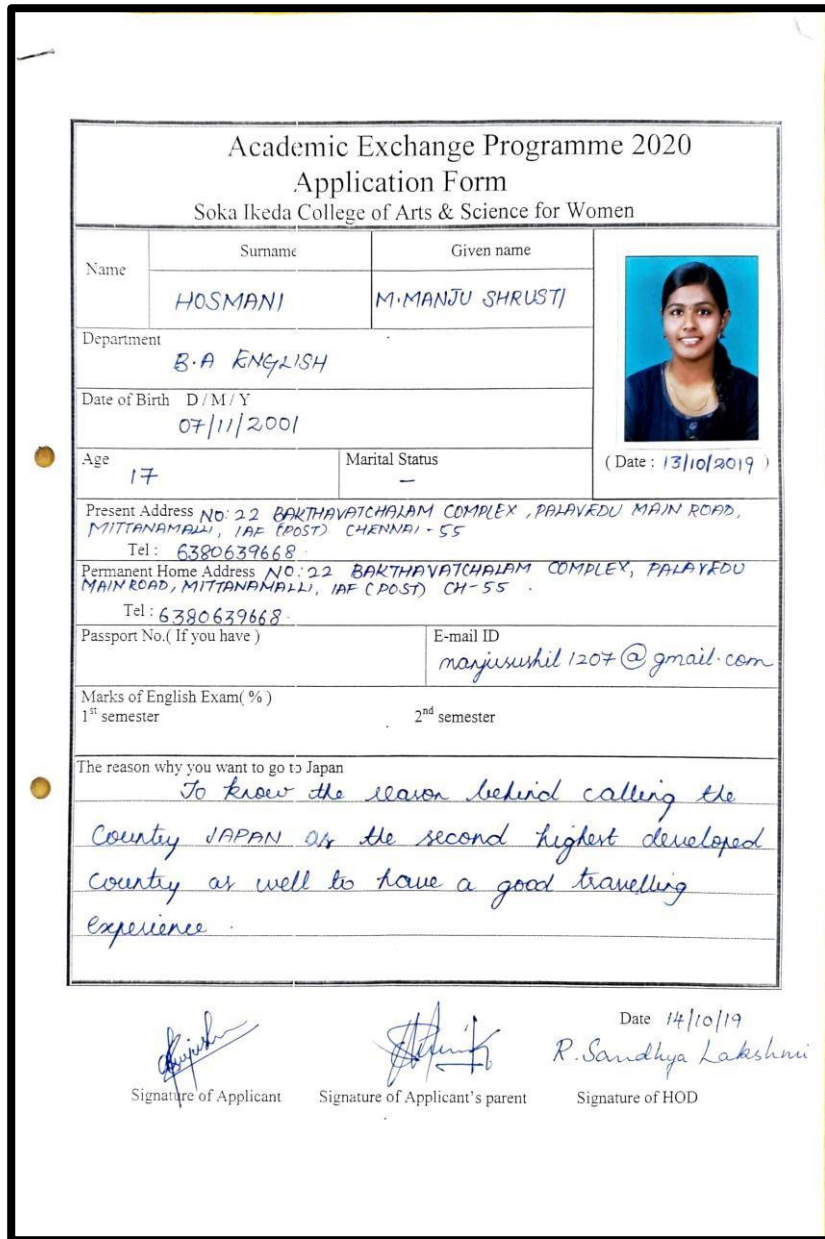 Academic Exchange Programme 2020
Application Form
Soka Ikeda College of Arts & Science for Women
Name
Surname
Given name
HOSMANI
M.MANJU SHRUSTI
Department
B.A ENGLISH
Date of Birth D / M / Y
07/11/2001
Age
17
Marital Status
-
( Date : 13/10/2019 )
Present Address NO: 22 BAKTHAVATCHALAM COMPLEX, PALAVEDU MAIN ROAD,
MITTANAMALLI, IAF (POST) CHENNAI - 55
Tel : 6380639668.
Permanent Home Address NO: 22 BAKTHAVATCHALAM COMPLEX, PALAVEDU
MAIN ROAD, MITTANAMALLI, IAF (POST) CH-55 .
Tel : 6380639668.
Passport No.( If you have )
E-mail ID
manjusushil1207@gmail.com
Marks of English Exam( % )
1st semester
2nd semester
The reason why you want to go to Japan
To know the reason behind calling the
Country JAPAN as the second highest developed
country as well to have a good travelling
experience .
Date 14/10/19
R. Sandhya Lakshmi
Signature of Applicant
Signature of Applicant's parent
Signature of HOD